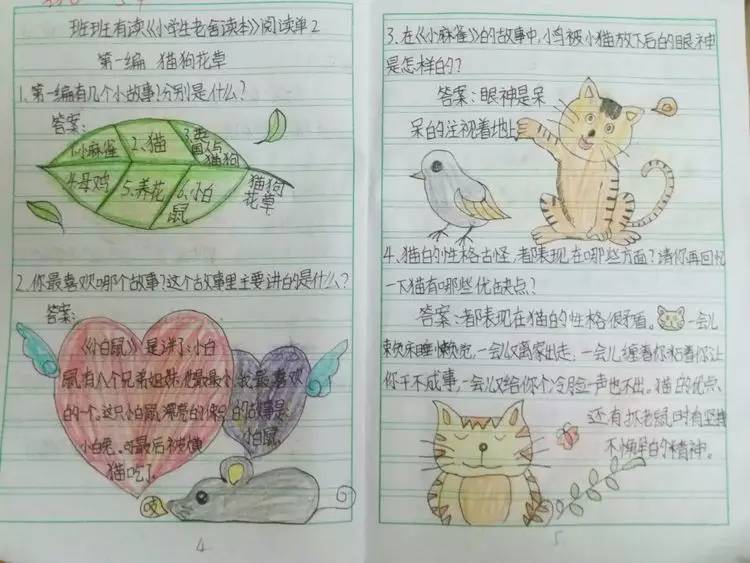 班班有读《小学生老舍读本》阅读单2
第一编 猫狗花草
1、第一编有几个小故事?分别是什么?
答案:
1.小麻雀
2、猫
猫狗
4.母鸡
5.养花
6.小白
鼠
猫狗
花草
2.你最喜欢哪个故事?这个故事里主要讲的是什么?
答案:
《小白鼠》是讲了:小白
鼠有八个兄弟姐妹,他最最小,
我最喜欢
的一个。这只小白鼠,漂亮的像只
的故事是:
小白兔。可最后被馋
小白鼠
猫吃了。
吱
4
3.在《小麻雀》的故事中,小鸟被小猫放下后的眼神
是怎样的?
答案:眼神是呆
呆的注视着地上
4、猫的性格古怪,都表现在哪些方面?请你再回忆
一下猫有哪些优缺点?
答案:都表现在猫的性格很矛盾。一会儿
睡懒觉,一会儿又离家出走,一会儿缠着你粘着你让
你干不成事,一会儿又给你个冷脸一声也不出。猫的优点
还有抓老鼠时有坚持
不懈的精神。
5